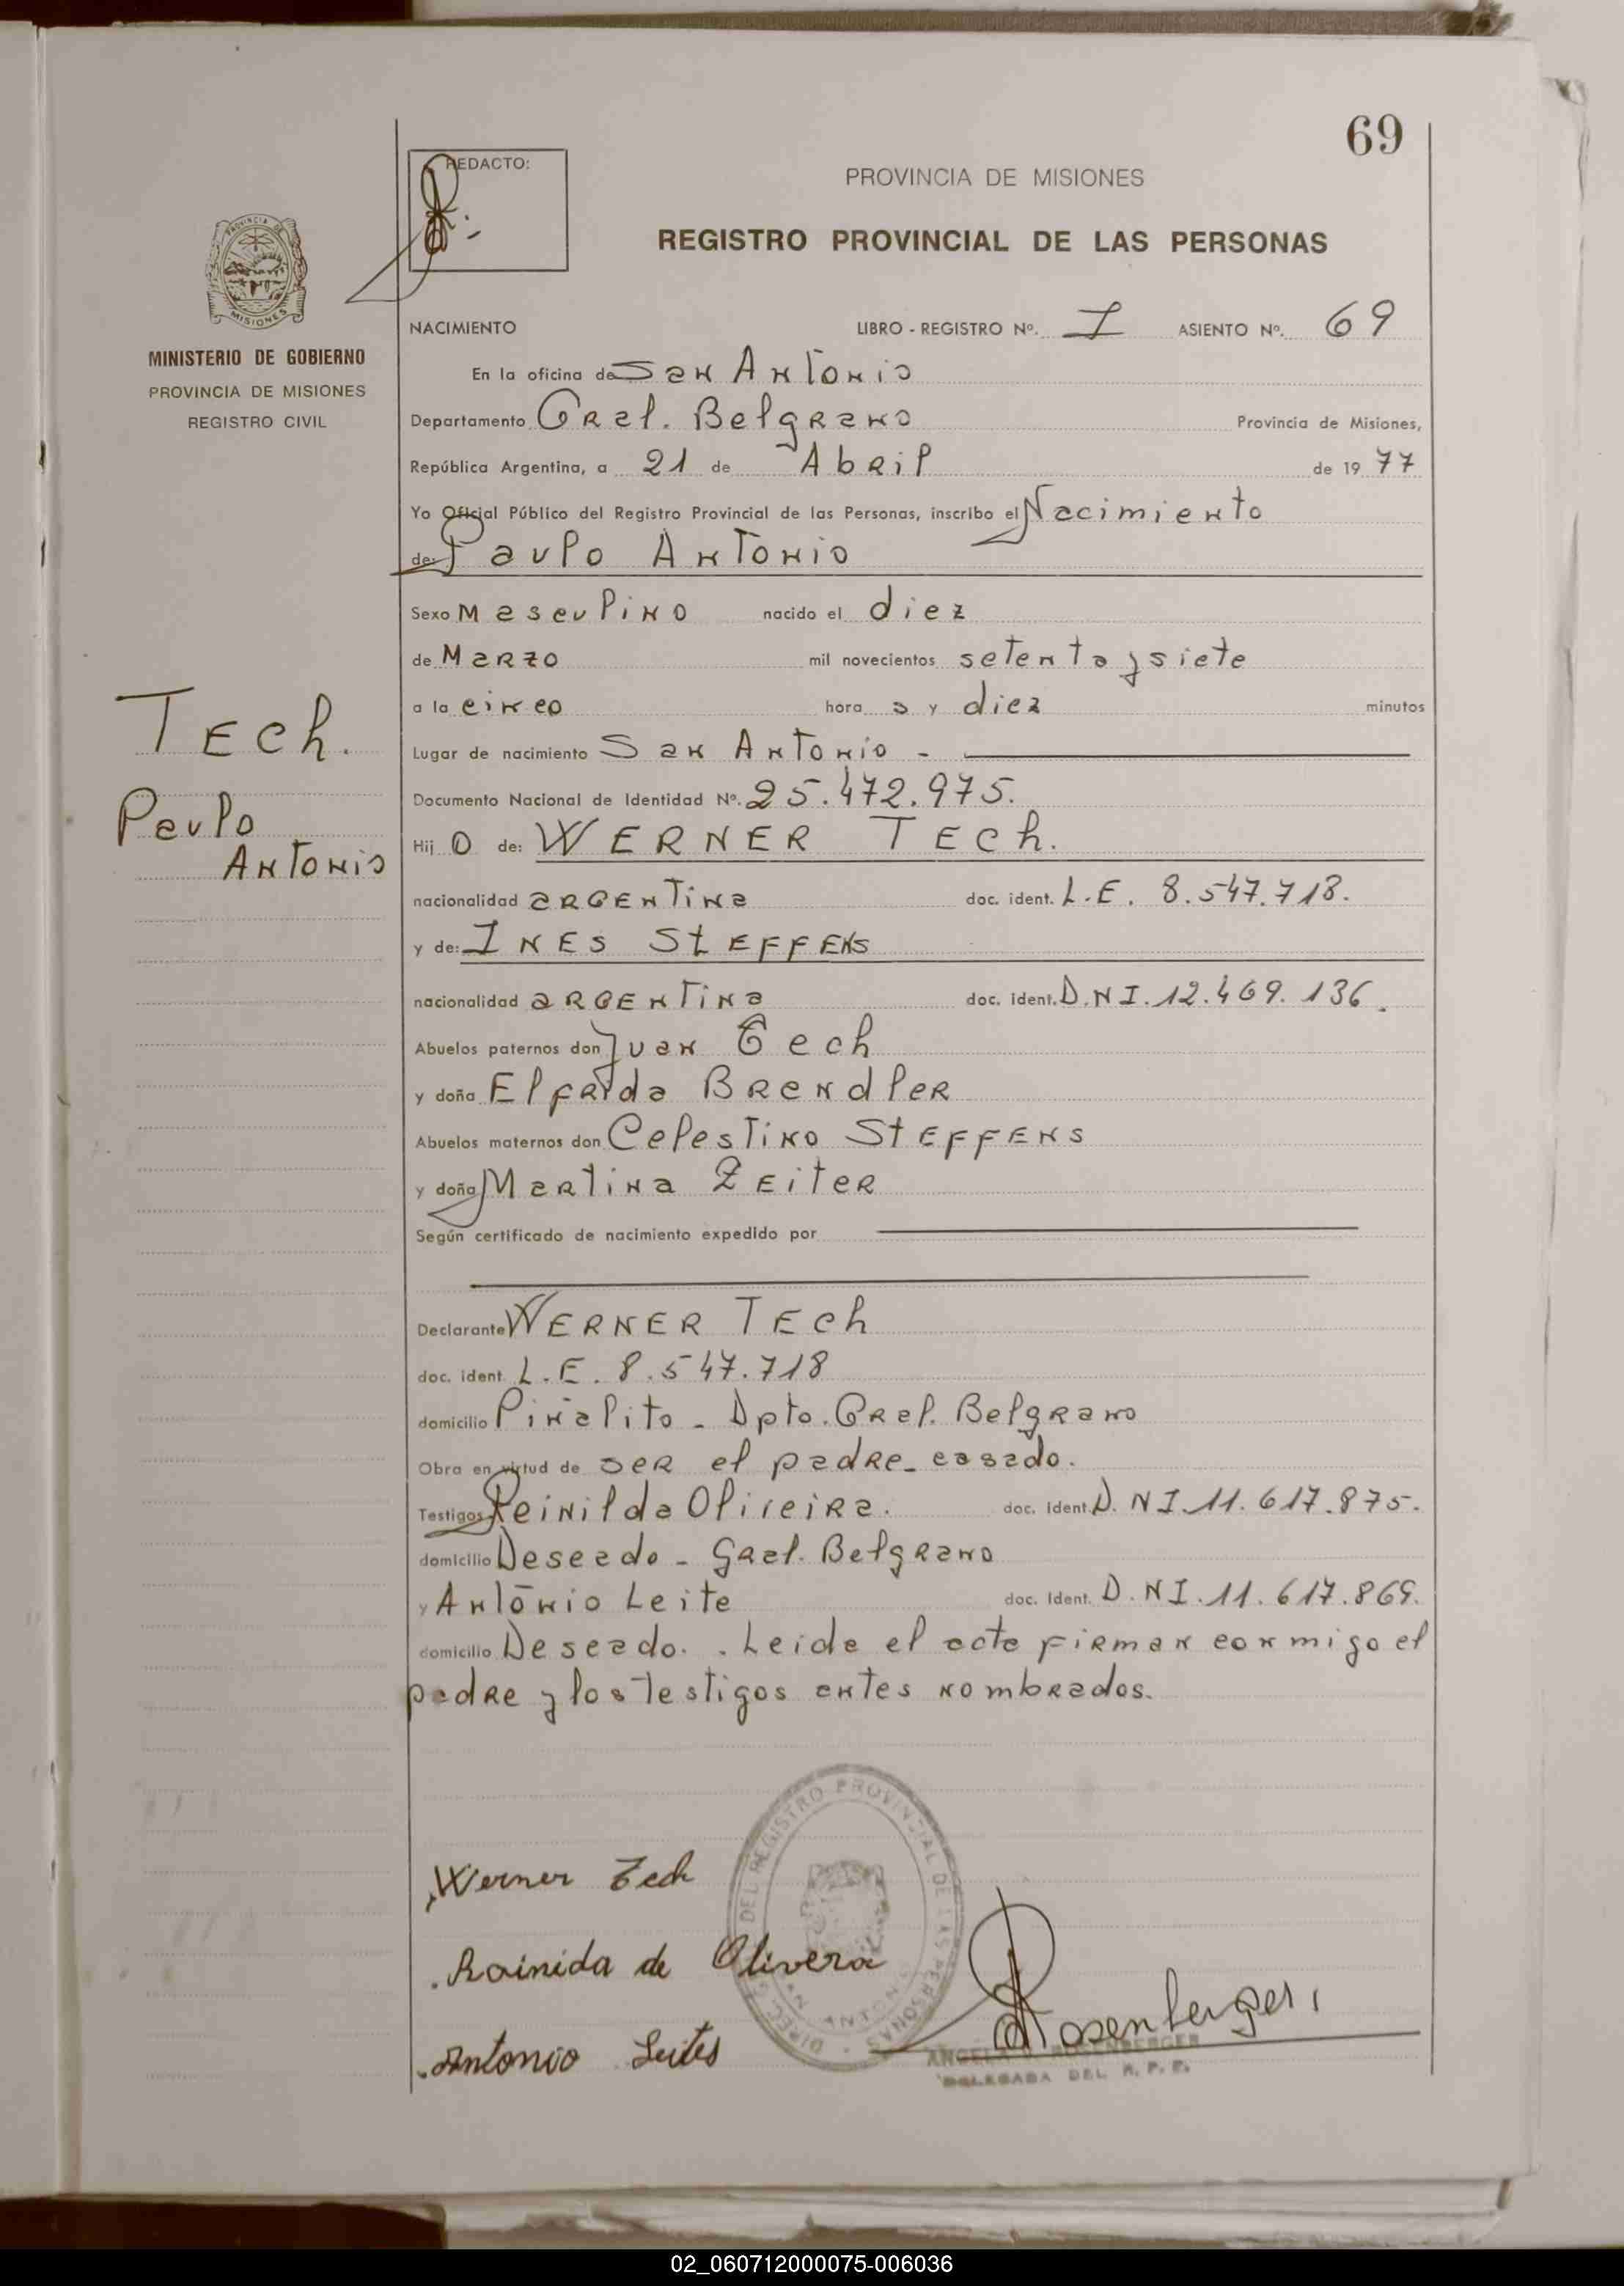 69
REDACTO:
PROVINCIA DE MISIONES
REGISTRO PROVINCIAL DE LAS PERSONAS
MISIONES
MINISTERIO DE GOBIERNO
PROVINCIA DE MISIONES
REGISTRO CIVIL
NACIMIENTO LIBRO - REGISTRO Nº. I ASIENTO Nº. 69
En la oficina de San Antonio
Departamento Gral. Belgrano Provincia de Misiones,
República Argentina, a 21 de Abril de 19 77
Yo Oficial Público del Registro Provincial de las Personas, inscribo el Nacimiento
de: Paulo Antonio
Sexo Masculino nacido el diez
de Marzo mil novecientos setenta y siete
a la cinco hora s y diez minutos
Lugar de nacimiento San Antonio -
Documento Nacional de Identidad Nº. 25.472.975.
Hij o de: WERNER TECh.
nacionalidad argentina doc. ident. L.E. 8.547.718.
y de: INES StEFFENS
nacionalidad argentina doc. ident. D.N I. 12.469.136.
Abuelos paternos don Juan Tech
y doña Elfrida Brendler
Abuelos maternos don Celestino StEFFENS
y doña Martina Zeiter
Según certificado de nacimiento expedido por
Declarante WERNER TECh
doc. ident. L.E. 8.547.718
domicilio Piñalito - Dpto. Gral. Belgrano
Obra en virtud de ser el padre - casado.
Testigos Reinilda Oliveira. doc. Ident. D. N I. 11.617.875.
domicilio Deseado - Gral. Belgrano
y Antonio Leite doc. Ident. D. N I. 11.617.869.
domicilio Deseado. . Leida el acta firman conmigo el
padre y los testigos antes nombrados.
Tech.
Paulo
Antonio
Werner Tech
Rainida de Olivera
Antonio Leites
Rosenberger
DIREC. G. DEL REGISTRO PROVINCIAL DE LAS PERSONAS
SAN ANTONIO
ANGELA ROSENBERGER
DELEGADA DEL R. P. P.
02_060712000075-006036